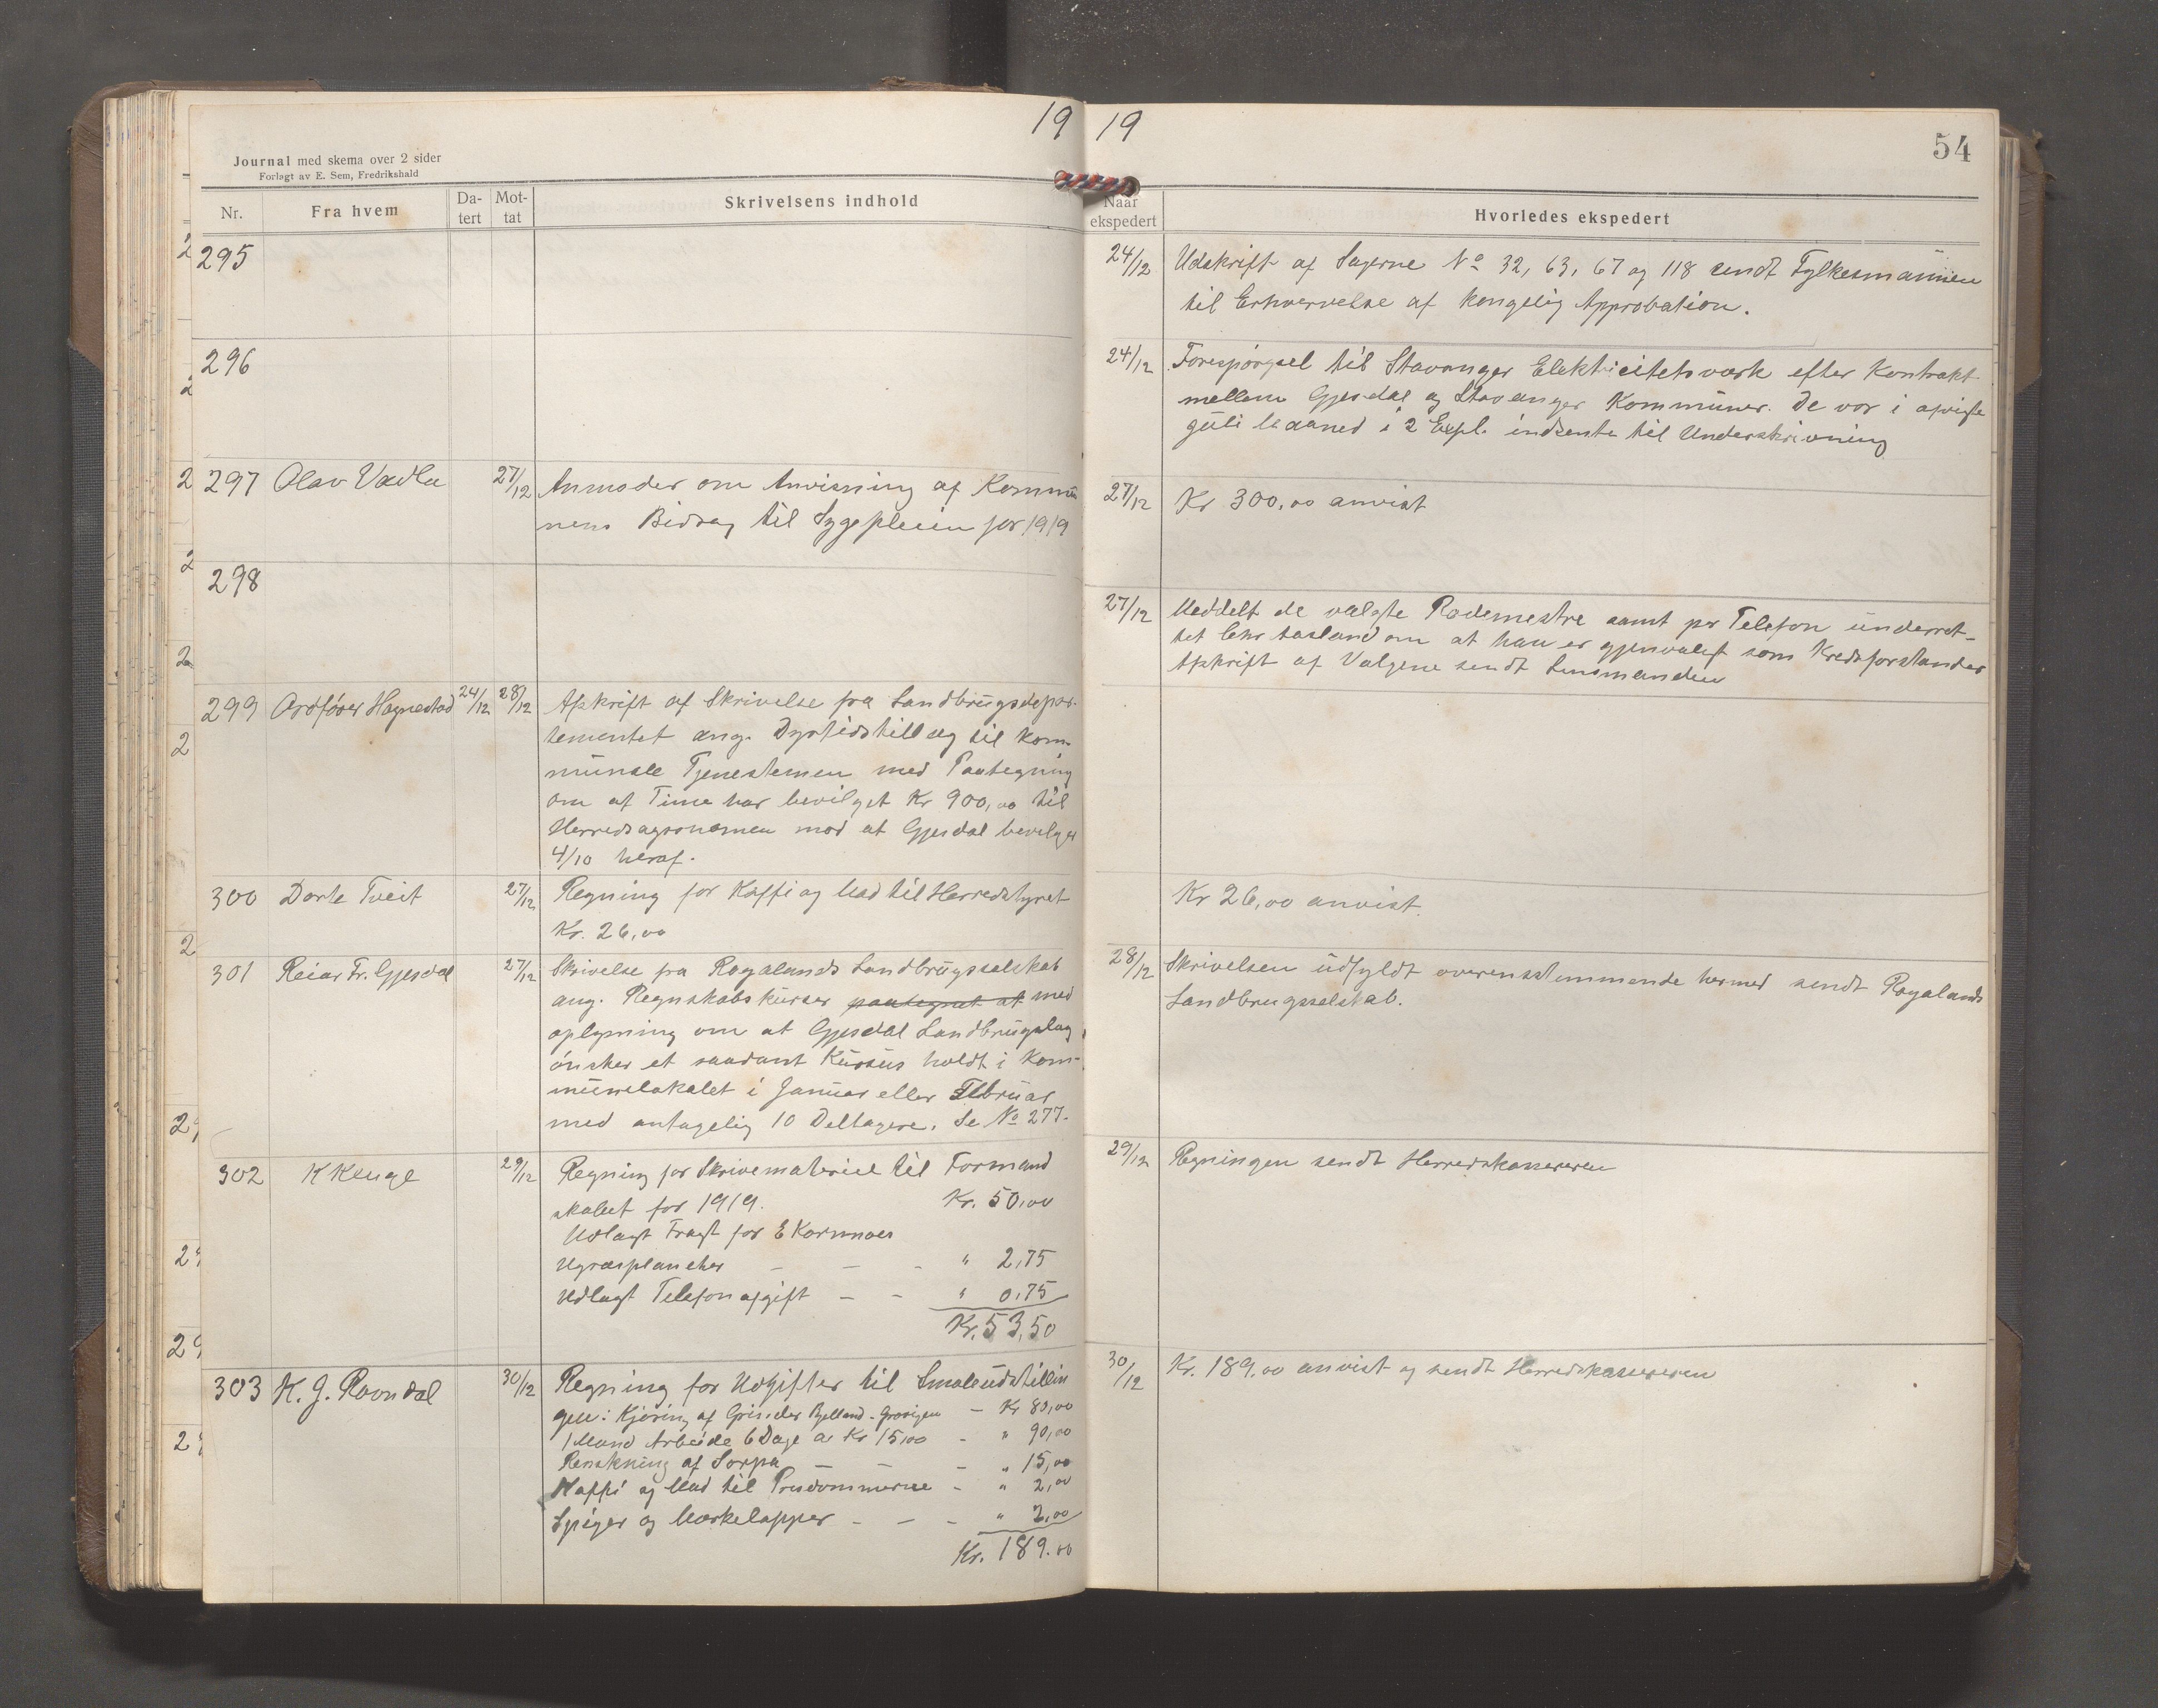 19 19
54
Journal med skema over 2 sider
Forlagt av E. Sem, Fredrikshald
Nr.
Fra hvem
Da-
tert
Mot-
tat
Skrivelsens indhold
Naar
ekspedert
Hvorledes ekspedert
295
24/12
Udskrift af Sagerne No 32, 63, 67 og 118 sendt Fylkesmannen
til Erhvervelse af kongelig Approbation.
296
24/12
Forespørgsel til Stavanger Elektricitetsverk efter Kontrakt
mellem Gjesdal og Stavanger Kommuner. De var i
Juli Maaned i 2 Expl. indsente til Underskrivning
297 Olav Vadla 27/12
Anmoder om Anvisning af Kommu
nens Bidrag til Sygepleien for 1919
27/12
Kr 300,00 anvist
298
27/12
Meddelt de valgte Rodemestre samt pr Telefon underret-
tet Chr Aasland om at han er gjenvalgt som Kredsforstander
Afskrift af Valgene sendt Lensmanden
299 Ordfører Hognestad 24/12 28/12
Afskrift af Skrivelse fra Landbrugsdepar-
tementet ang. Dyrtidstillæg til kom-
munale Tjenestemen med Paategning
om at Time har bevilget Kr 900,00 til
Herredsagronomen mod at Gjesdal bevilger
4/10 heraf.
300 Dorte Tveit 27/12
Regning for Kaffi og Mad til Herredstyret
Kr. 26,00
Kr 26,00 anvist.
301 Reiar Fr. Gjesdal 27/12
Skrivelse fra Rogalands Landbrugsselskab
ang. Regnskabskurser paategnet at med
oplysning om at Gjesdal Landbrugslag
ønsker et saadant Kursus holdt i Kom-
munelokalet i Januar eller Februar
med antagelig 10 Deltagere. Se No 277.
28/12
Skrivelsen udfyldt overensstemmende hermed sendt Rogalands
Landbrugsselskab.
302 K Kluge 29/12
Regning for Skrivemateriel til Formand
skabet for 1919. Kr. 50,00
Udlagt Fragt for E Kornmoes
Ugræsplancher - - - " 2,75
Udlagt Telefonafgift - - " 0,75
Kr. 53,50
29/12
Regningen sendt Herredskassereren
303 K. G. Ravndal 30/12
Regning for Udgifter til Smaleudstillin
gen: Kjøring af Grinder Bjelland - - Kr 80,00
1 Mand Arbeide 6 Dage a Kr 15,00 - " 90,00
Renskning af Sorpa - - - " 15,00
Kaffi og Mad til Prisdommerne - " 2,00
Spiger og Merkelapper - - - " 2,00
Kr. 189.00
30/12
Kr. 189,00 anvist og sendt Herredskassereren